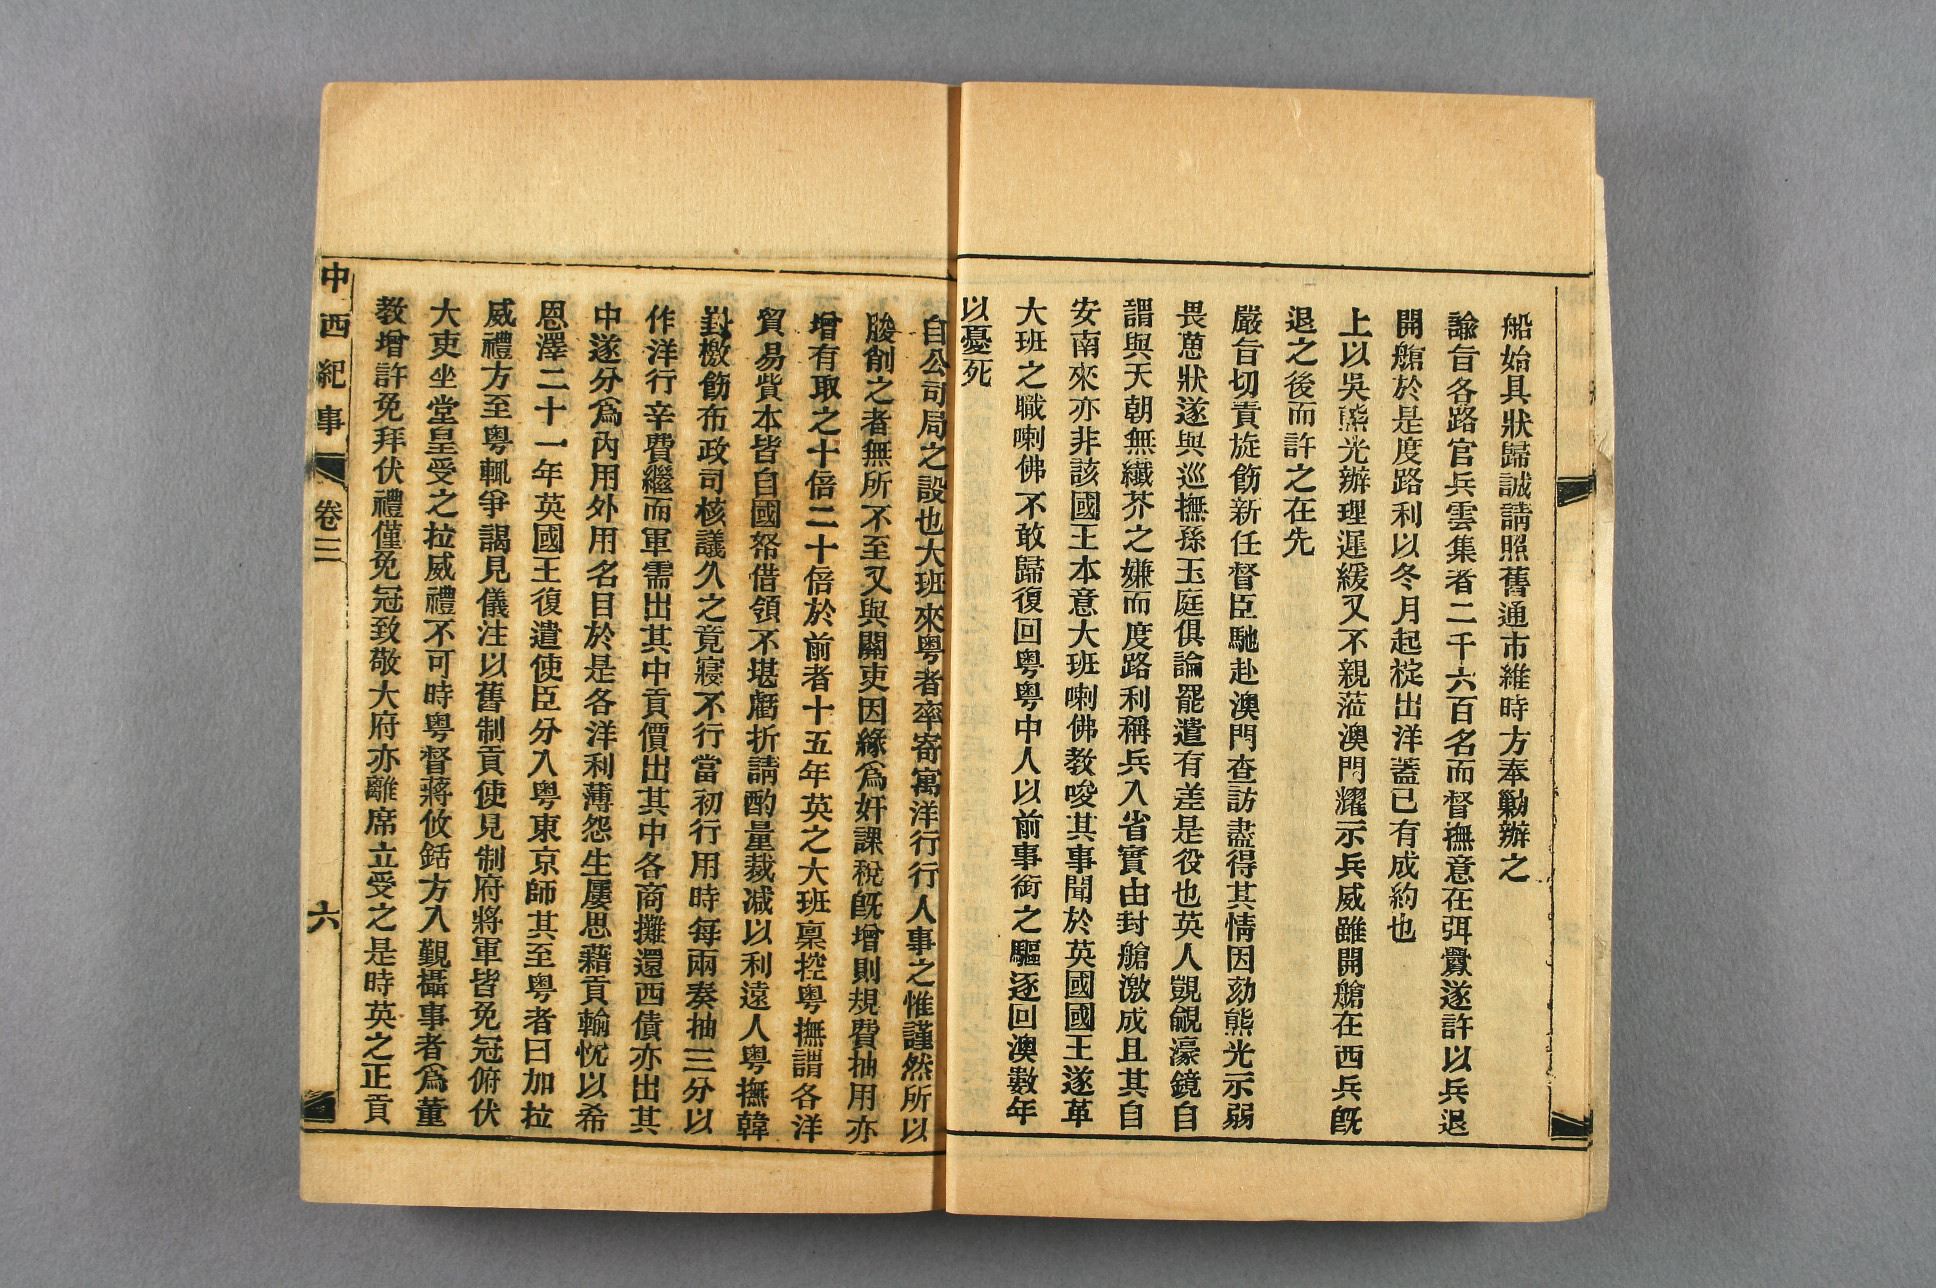 船始具狀歸誠請照舊通市維時方奉勦辦之
諭旨各路官兵雲集者二千六百名而督撫意在弭釁遂許以兵退
開艙於是度路利以冬月起椗出洋蓋已有成約也
上以吳熊光辦理遲緩又不親蒞澳門耀示兵威雖開艙在西兵既
退之後而許之在先
嚴旨切責旋飭新任督臣馳赴澳門查訪盡得其情因劾熊光示弱
畏葸狀遂與巡撫孫玉庭俱論罷遣有差是役也英人覬覦濠鏡自
謂與天朝無纖芥之嫌而度路利稱兵入省實由封艙激成且其自
安南來亦非該國王本意大班喇佛教唆其事聞於英國國王遂革
大班之職喇佛不敢歸復回粵粵中人以前事銜之驅逐回澳數年
以憂死
自公司局之設也大班來粵者率寄寓洋行行人事之惟謹然所以
朘削之者無所不至又與關吏因緣爲奸課稅旣增則規費抽用亦
增有取之十倍二十倍於前者十五年英之大班稟控粵撫謂各洋
貿易貲本皆自國帑借領不堪虧折請酌量裁減以利遠人粵撫韓
對檄飭布政司核議久之竟寢不行當初行用時每兩奏抽三分以
作洋行辛費繼而軍需出其中貢價出其中各商攤還西債亦出其
中遂分爲內用外用名目於是各洋利薄怨生屢思藉貢輸忱以希
恩澤二十一年英國王復遣使臣分入粵東京師其至粵者曰加拉
威禮方至粵輒爭謁見儀注以舊制貢使見制府將軍皆免冠俯伏
大吏坐堂皇受之拉威禮不可時粵督蔣攸銛方入覲攝事者爲董
教增許免拜伏禮僅免冠致敬大府亦離席立受之是時英之正貢
中西紀事
卷三
六